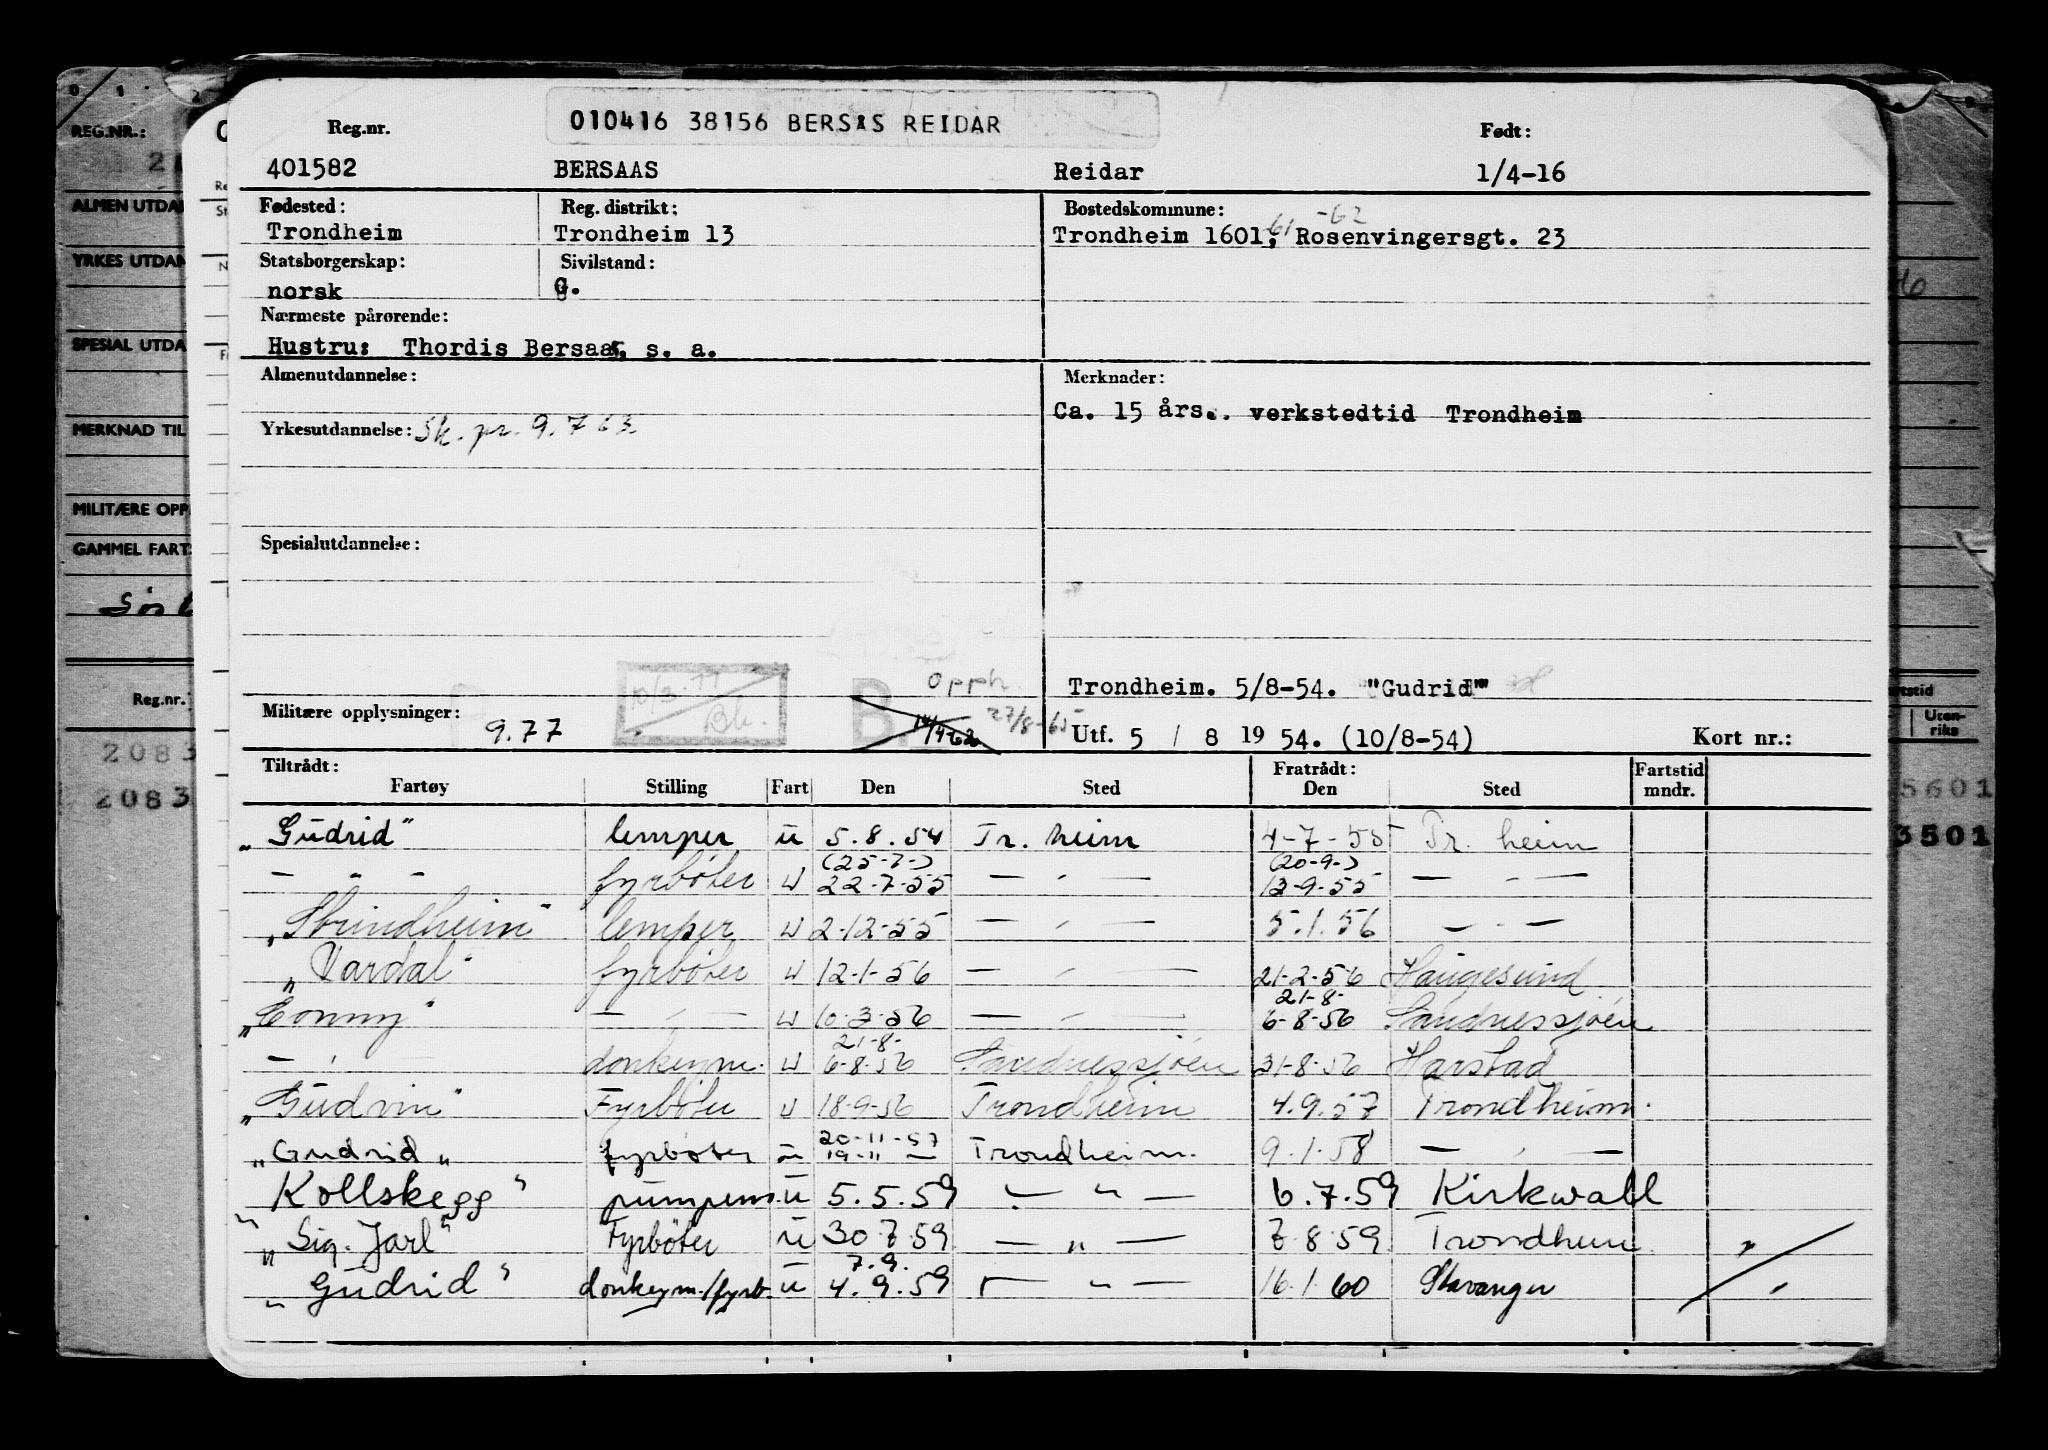 010416 38156 BERSAS REIDAR
Reg.nr. Født:
401582 BERSAAS Reidar 1/4-16
Fødested: Reg. distrikt: Bostedskommune:
61 -62
Trondheim Trondheim 13 Trondheim 1601, Rosenvingersgt. 23
Statsborgerskap: Sivilstand:
norsk G.
Nærmeste pårørende:
Hustru: Thordis Bersaas, s. a.
Almenutdannelse: Merknader:
Ca. 15 års.. verkstedtid Trondheim
Yrkesutdannelse: Sk. pr. 9.7 63
Spesialutdannelse:
10/3-77 Bk. B. opph. 27/8-65
Trondheim. 5/8-54. "Gudrid"
Militære opplysninger: 9.77 14/4-62 Utf. 5 / 8 19 54. (10/8-54) Kort nr.:
Tiltrådt: Fratrådt: Fartstid
Fartøy Stilling Fart Den Sted Den Sted mndr.
"Gudrid" lemper u 5.8.54 Tr. heim 4-7-55 Tr. heim
(25-7-) (20-9-)
— " — fyrbøter u 22.7-55 — " — 13-9-55 — " —
"Strindheim" lemper u 2-12-55 — " — 5.1.56 — " —
"Vardal" fyrbøter u 12-1-56 — " — 21-2-56 Haugesund
21-8-
"Conny" — " — u 10.3.56 — " — 6-8-56 Sandnessjøen
21-8-
— " — donkeym. u 6-8-56 Sandnessjøen 31-8-56 Harstad
"Gudvin" Fyrbøter u 18-9-56 Trondheim 4.9.57 Trondheim.
20-11-57
"Gudrid" fyrbøter u 19-11 — Trondheim. 9.1.58 — " —
"Kollskegg" pumpem. u 5.5.59 — " — 6.7.59 Kirkwall
"Sig. Jarl" Fyrbøter u 30.7.59 — " — 7.8.59 Trondheim. "
7.9.
"Gudrid" donkeym./fyrb. u 4.9.59 — " — 16.1.60 Stavanger "
REG.NR.:
ALMEN UTDA
YRKES UTDAN
SPESIAL UTDA
MERKNAD TIL
MILITÆRE OPP
GAMMEL FART
Reg.nr.
2083
2083
Uten-
riks
5601
3501